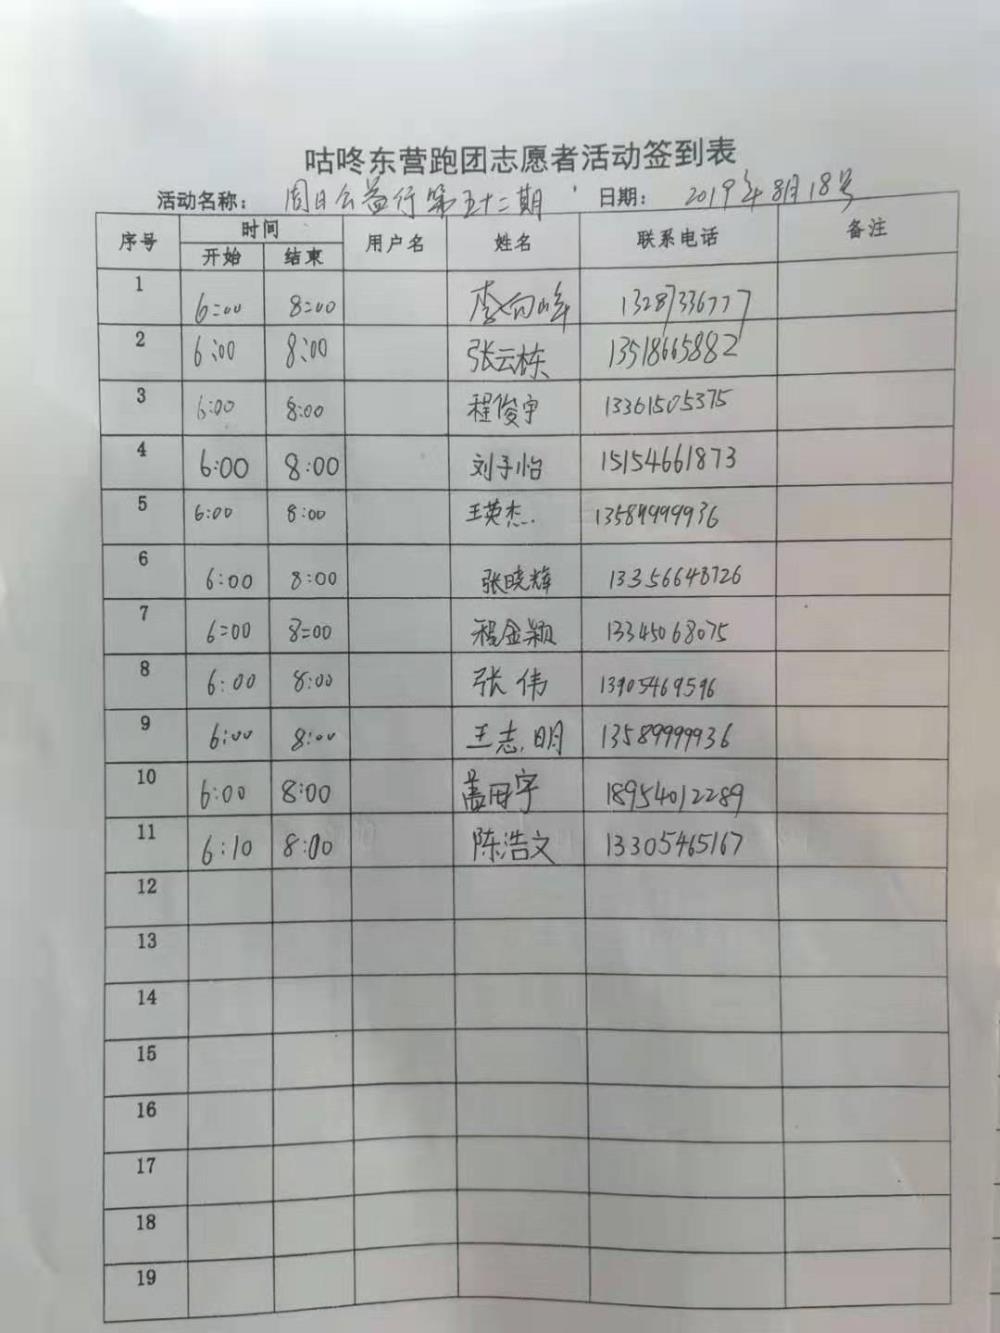 咕咚东营跑团志愿者活动签到表
活动名称： 周日公益行第五十二期 日期： 2019年8月18号
序号 时间 用户名 姓名 联系电话 备注
开始 结束
1 6:00 8:00 李向峰 13287336777
2 6:00 8:00 张云栋 13518665882
3 6:00 8:00 程俊宇 13361505375
4 6:00 8:00 刘子怡 15154661873
5 6:00 8:00 王英杰 13589999936
6 6:00 8:00 张晓辉 13356648726
7 6:00 8:00 程金颖 13345068075
8 6:00 8:00 张伟 13905469596
9 6:00 8:00 王志明 13589999936
10 6:00 8:00 宇 18954012289
11 6:10 8:00 陈浩文 13305465167
12
13
14
15
16
17
18
19